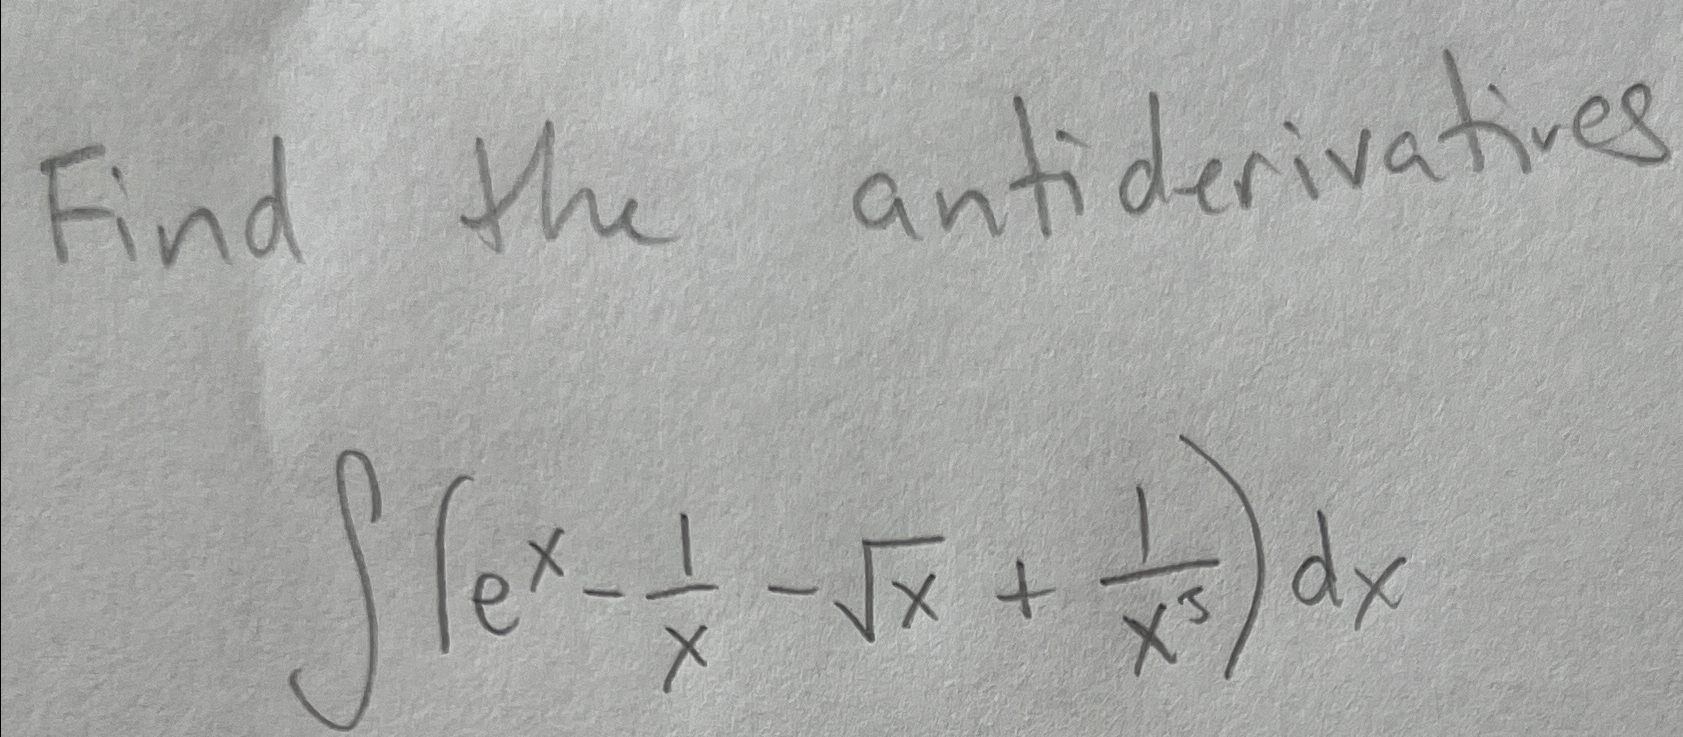 Find the antiderivatives
∫(eˣ - 1/x - √x + 1/x⁵) dx